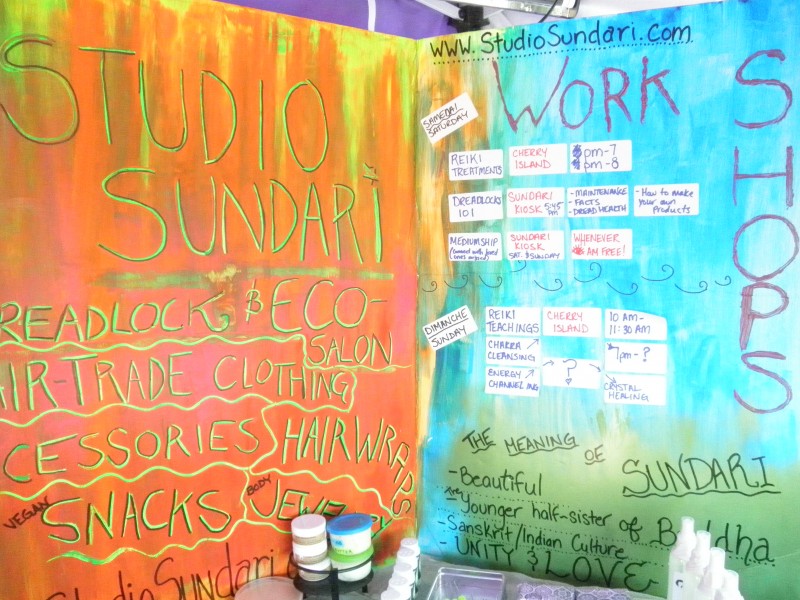 STUDIO
SUNDARI
READLOCK & ECO-
SALON
AIR-TRADE CLOTHING
CCESSORIES
HAIRWRAPS
VEGAN
SNACKS
BODY
JEWELRY
StudioSundari
www.StudioSundari.Com
WORK
SHOPS
SAMEDI/
SATURDAY
REIKI TREATMENTS
CHERRY ISLAND
pm-7
pm-8
DREADLOCKS 101
SUNDARI KIOSK 5:45 pm
- MAINTENANCE
- FACTS
- DREAD HEALTH
- How to make your own Products
MEDIUMSHIP
SUNDARI KIOSK
SAT. & SUNDAY
WHENEVER
I AM FREE!
DIMANCHE
SUNDAY
REIKI TEACHINGS
CHERRY ISLAND
10 AM-
11:30 AM
CHAKRA CLEANSING
?
7pm-?
ENERGY CHANNELING
CRYSTAL HEALING
THE MEANING OF SUNDARI
- Beautiful
- Younger half-sister of Buddha
- Sanskrit/Indian Culture
- UNITY & LOVE